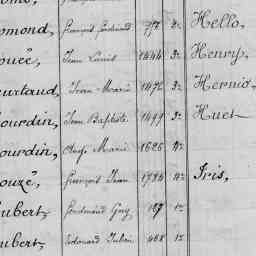 omond, François Ferdinand 797 4e Hello,
oucé, Jean Louis 1444 3e Henry,
Jean Marie 1472 3e Hernio,
ourdin, Jean Baptiste 1499 3e Huet
ourdin, Aug. Marie 1626 4e
ouzé, François Jean 1784 4e Iris,
ubert, Ferdinand Guy 167 1e
ubert, Edouard Julien 468 1e